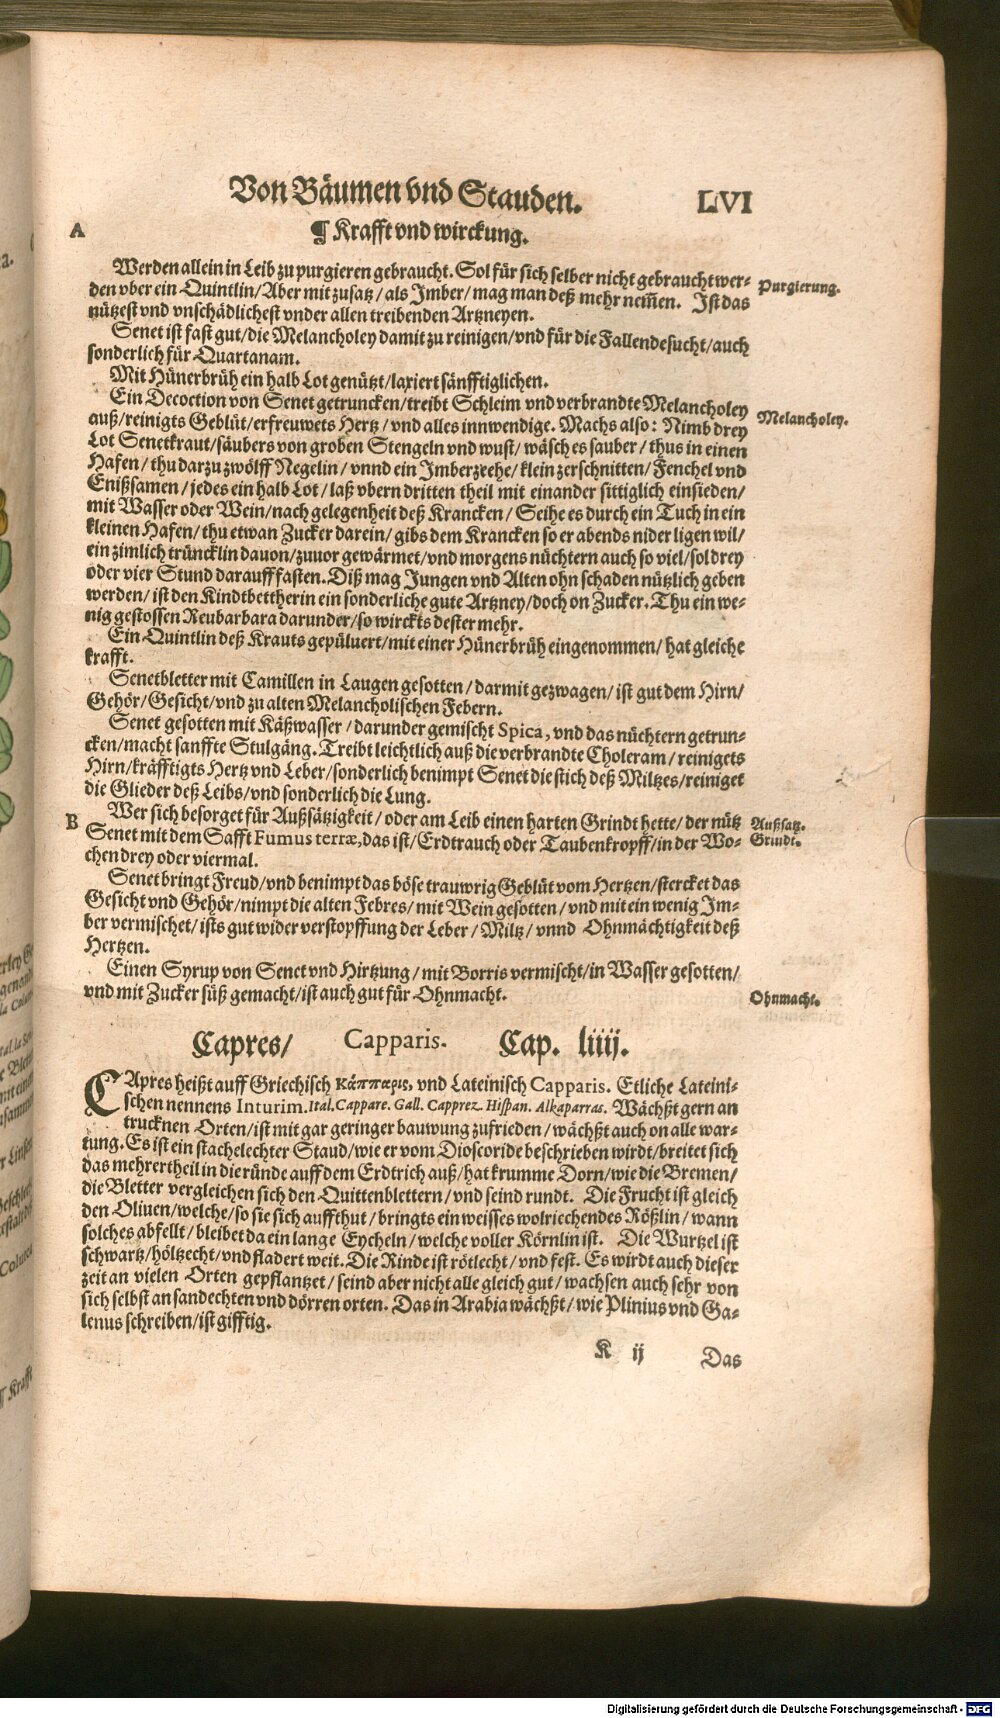 Von Bäumen vnd Stauden. LVI
A ¶ Krafft vnd wirckung.
Werden allein in Leib zu purgieren gebraucht. Sol für sich selber nicht gebraucht wer-
den vber ein Quintlin/ Aber mit zusatz/ als Imber/ mag man deß mehr nem̃en. Ist das
nützest vnd vnschädlichest vnder allen treibenden Artzneyen.
Purgierung.
Senet ist fast gut/ die Melancholey damit zu reinigen/ vnd für die Fallendesucht/ auch
sonderlich für Quartanam.
Mit Hünerbrüh ein halb Lot genützt/ laxiert sänfftiglichen.
Ein Decoction von Senet getruncken/ treibt Schleim vnd verbrandte Melancholey
auß/ reinigts Geblüt/ erfreuwets Hertz/ vnd alles innwendige. Machs also: Nimb drey
Melancholey.
Lot Senetkraut/ säubers von groben Stengeln vnd wust/ wäsch es sauber/ thus in einen
Hafen/ thu darzu zwölff Negelin/ vnnd ein Imberzeehe/ klein zerschnitten/ Fenchel vnd
Enißsamen/ jedes ein halb Lot/ laß vbern dritten theil mit einander sittiglich einsieden/
mit Wasser oder Wein/ nach gelegenheit deß Krancken/ Seihe es durch ein Tuch in ein
kleinen Hafen/ thu etwan Zucker darein/ gibs dem Krancken so er abends nider ligen wil/
ein zimlich trüncklin dauon/ zuuor gewärmet/ vnd morgens nüchtern auch so viel/ sol drey
oder vier Stund darauff fasten. Diß mag Jungen vnd Alten ohn schaden nützlich geben
werden/ ist den Kindtbettherin ein sonderliche gute Artzney/ doch on Zucker. Thu ein we-
nig gestossen Reubarbara darunder/ so wirckts dester mehr.
Ein Quintlin deß Krauts gepüluert/ mit einer Hünerbrüh eingenommen/ hat gleiche
krafft.
Senetbletter mit Camillen in Laugen gesotten/ darmit gezwagen/ ist gut dem Hirn/
Gehör/ Gesicht/ vnd zu alten Melancholischen Febern.
Senet gesotten mit Käßwasser/ darunder gemischt Spica, vnd das nüchtern getrun-
cken/ macht sanffte Stulgäng. Treibt leichtlich auß die verbrandte Choleram/ reinigets
Hirn/ kräfftigts Hertz vnd Leber/ sonderlich benimpt Senet die stich deß Miltzes/ reiniget
die Glieder deß Leibs/ vnd sonderlich die Lung.
B Wer sich besorget für Außsätzigkeit/ oder am Leib einen harten Grindt hette/ der nütz
Senet mit dem Safft Fumus terræ, das ist/ Erdtrauch oder Taubenkropff/ in der Wo-
chen drey oder viermal.
Außsatz.
Grindt.
Senet bringt Freud/ vnd benimpt das böse trauwrig Geblüt vom Hertzen/ stercket das
Gesicht vnd Gehör/ nimpt die alten Febres/ mit Wein gesotten/ vnd mit ein wenig Im-
ber vermischet/ ists gut wider verstopffung der Leber/ Miltz/ vnnd Ohnmächtigkeit deß
Hertzen.
Einen Syrup von Senet vnd Hirtzung/ mit Borris vermischt/ in Wasser gesotten/
vnd mit Zucker süß gemacht/ ist auch gut für Ohnmacht.
Ohnmacht.
Capres/ Capparis. Cap. liiij.
CApres heißt auff Griechisch κάππαρις, vnd Lateinisch Capparis. Etliche Lateini-
schen nennens Inturim. Ital. Cappare. Gall. Capprez. Hispan. Alkaparras. Wächßt gern an
trucknen Orten/ ist mit gar geringer bauwung zufrieden/ wächßt auch on alle war-
tung. Es ist ein stachelechter Staud/ wie er vom Dioscoride beschrieben wirdt/ breitet sich
das mehrertheil in die ründe auff dem Erdtrich auß/ hat krumme Dorn/ wie die Bremen/
die Bletter vergleichen sich den Quittenblettern/ vnd seind rundt. Die Frucht ist gleich
den Oliuen/ welche/ so sie sich auffthut/ bringts ein weisses wolriechendes Rößlin/ wann
solches abfellt/ bleibet da ein lange Eycheln/ welche voller Körnlin ist. Die Wurtzel ist
schwartz/ höltzecht/ vnd fladert weit. Die Rinde ist rötlecht/ vnd fest. Es wirdt auch dieser
zeit an vielen Orten gepflantzet/ seind aber nicht alle gleich gut/ wachsen auch sehr von
sich selbst an sandechten vnd dörren orten. Das in Arabia wächßt/ wie Plinius vnd Ga-
lenus schreiben/ ist gifftig.
K ij Das
Digitalisierung gefördert durch die Deutsche Forschungsgemeinschaft - DFG